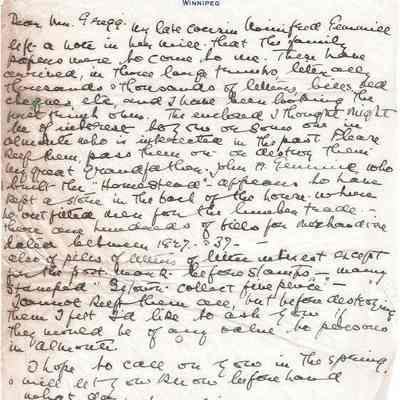 WINNIPEG
Dear Mr. Gregg. My late cousin Winnifred Gemmill
left a note in her will that the family
papers were to come to me. These have
arrived, in three large trunks, literally
thousands & thousands of letters, bills, old
cheques, etc, and I have been looking the
first through ours. The enclosed I thought might
be of interest to you or some one in
Almonte who is interested in the past. Please
keep them, pass them on or destroy them
My great Grandfather. John A. Gemmill who
built the "Homestead" appears to have
kept a store in the back of the house where
he outfitted men for the lumber trade -
there are hundreds of bills for merchandise
dated between 1827 - 37 -
also of piles of letters of little interest except
for the post mark - before stamps - many
stamped "Bytown - collect five pence" -
I cannot keep them all, but before destroying
them I felt I'd like to ask you if
they would be of any value to persons
in Almonte.
I hope to call on you in the spring,
& will let you know beforehand
what day